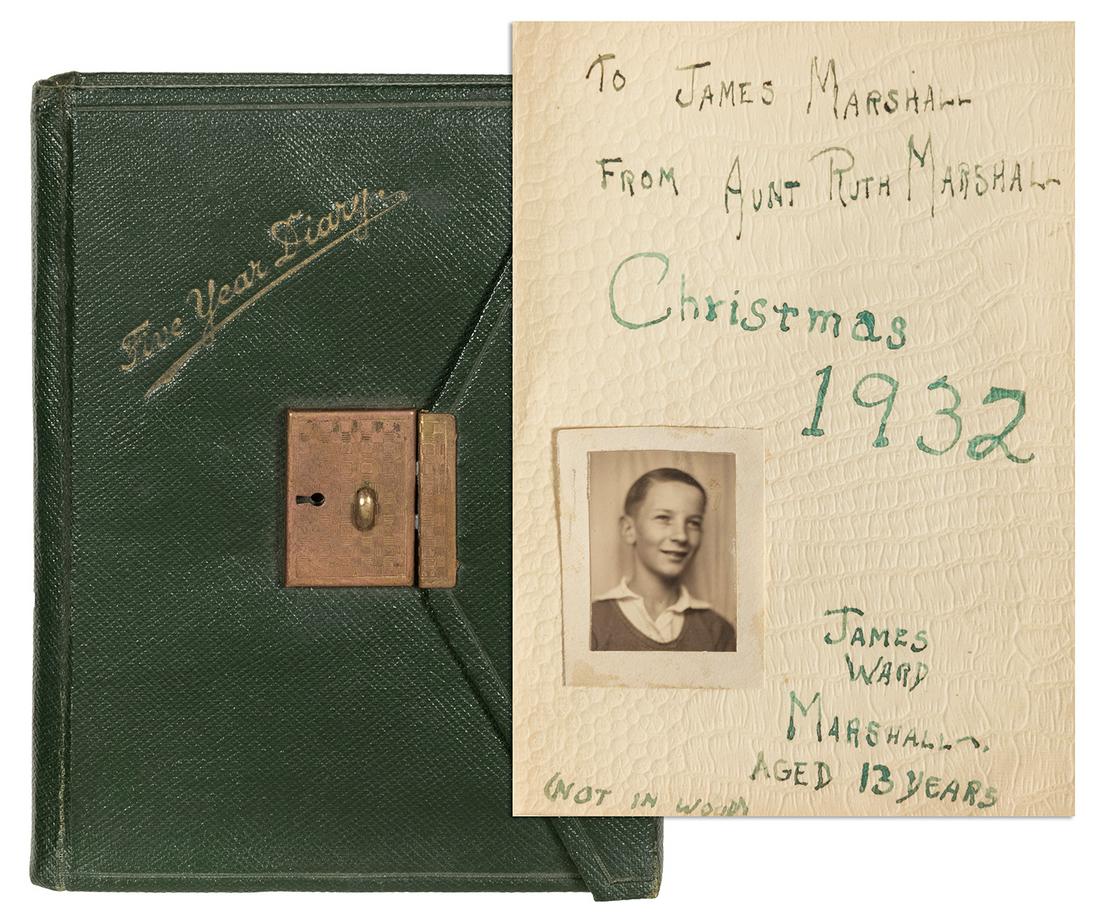 Five Year Diary.
To James Marshall
From Aunt Ruth Marshall
Christmas
1932
James
Ward
Marshall.
Aged 13 years
(Not in wood)